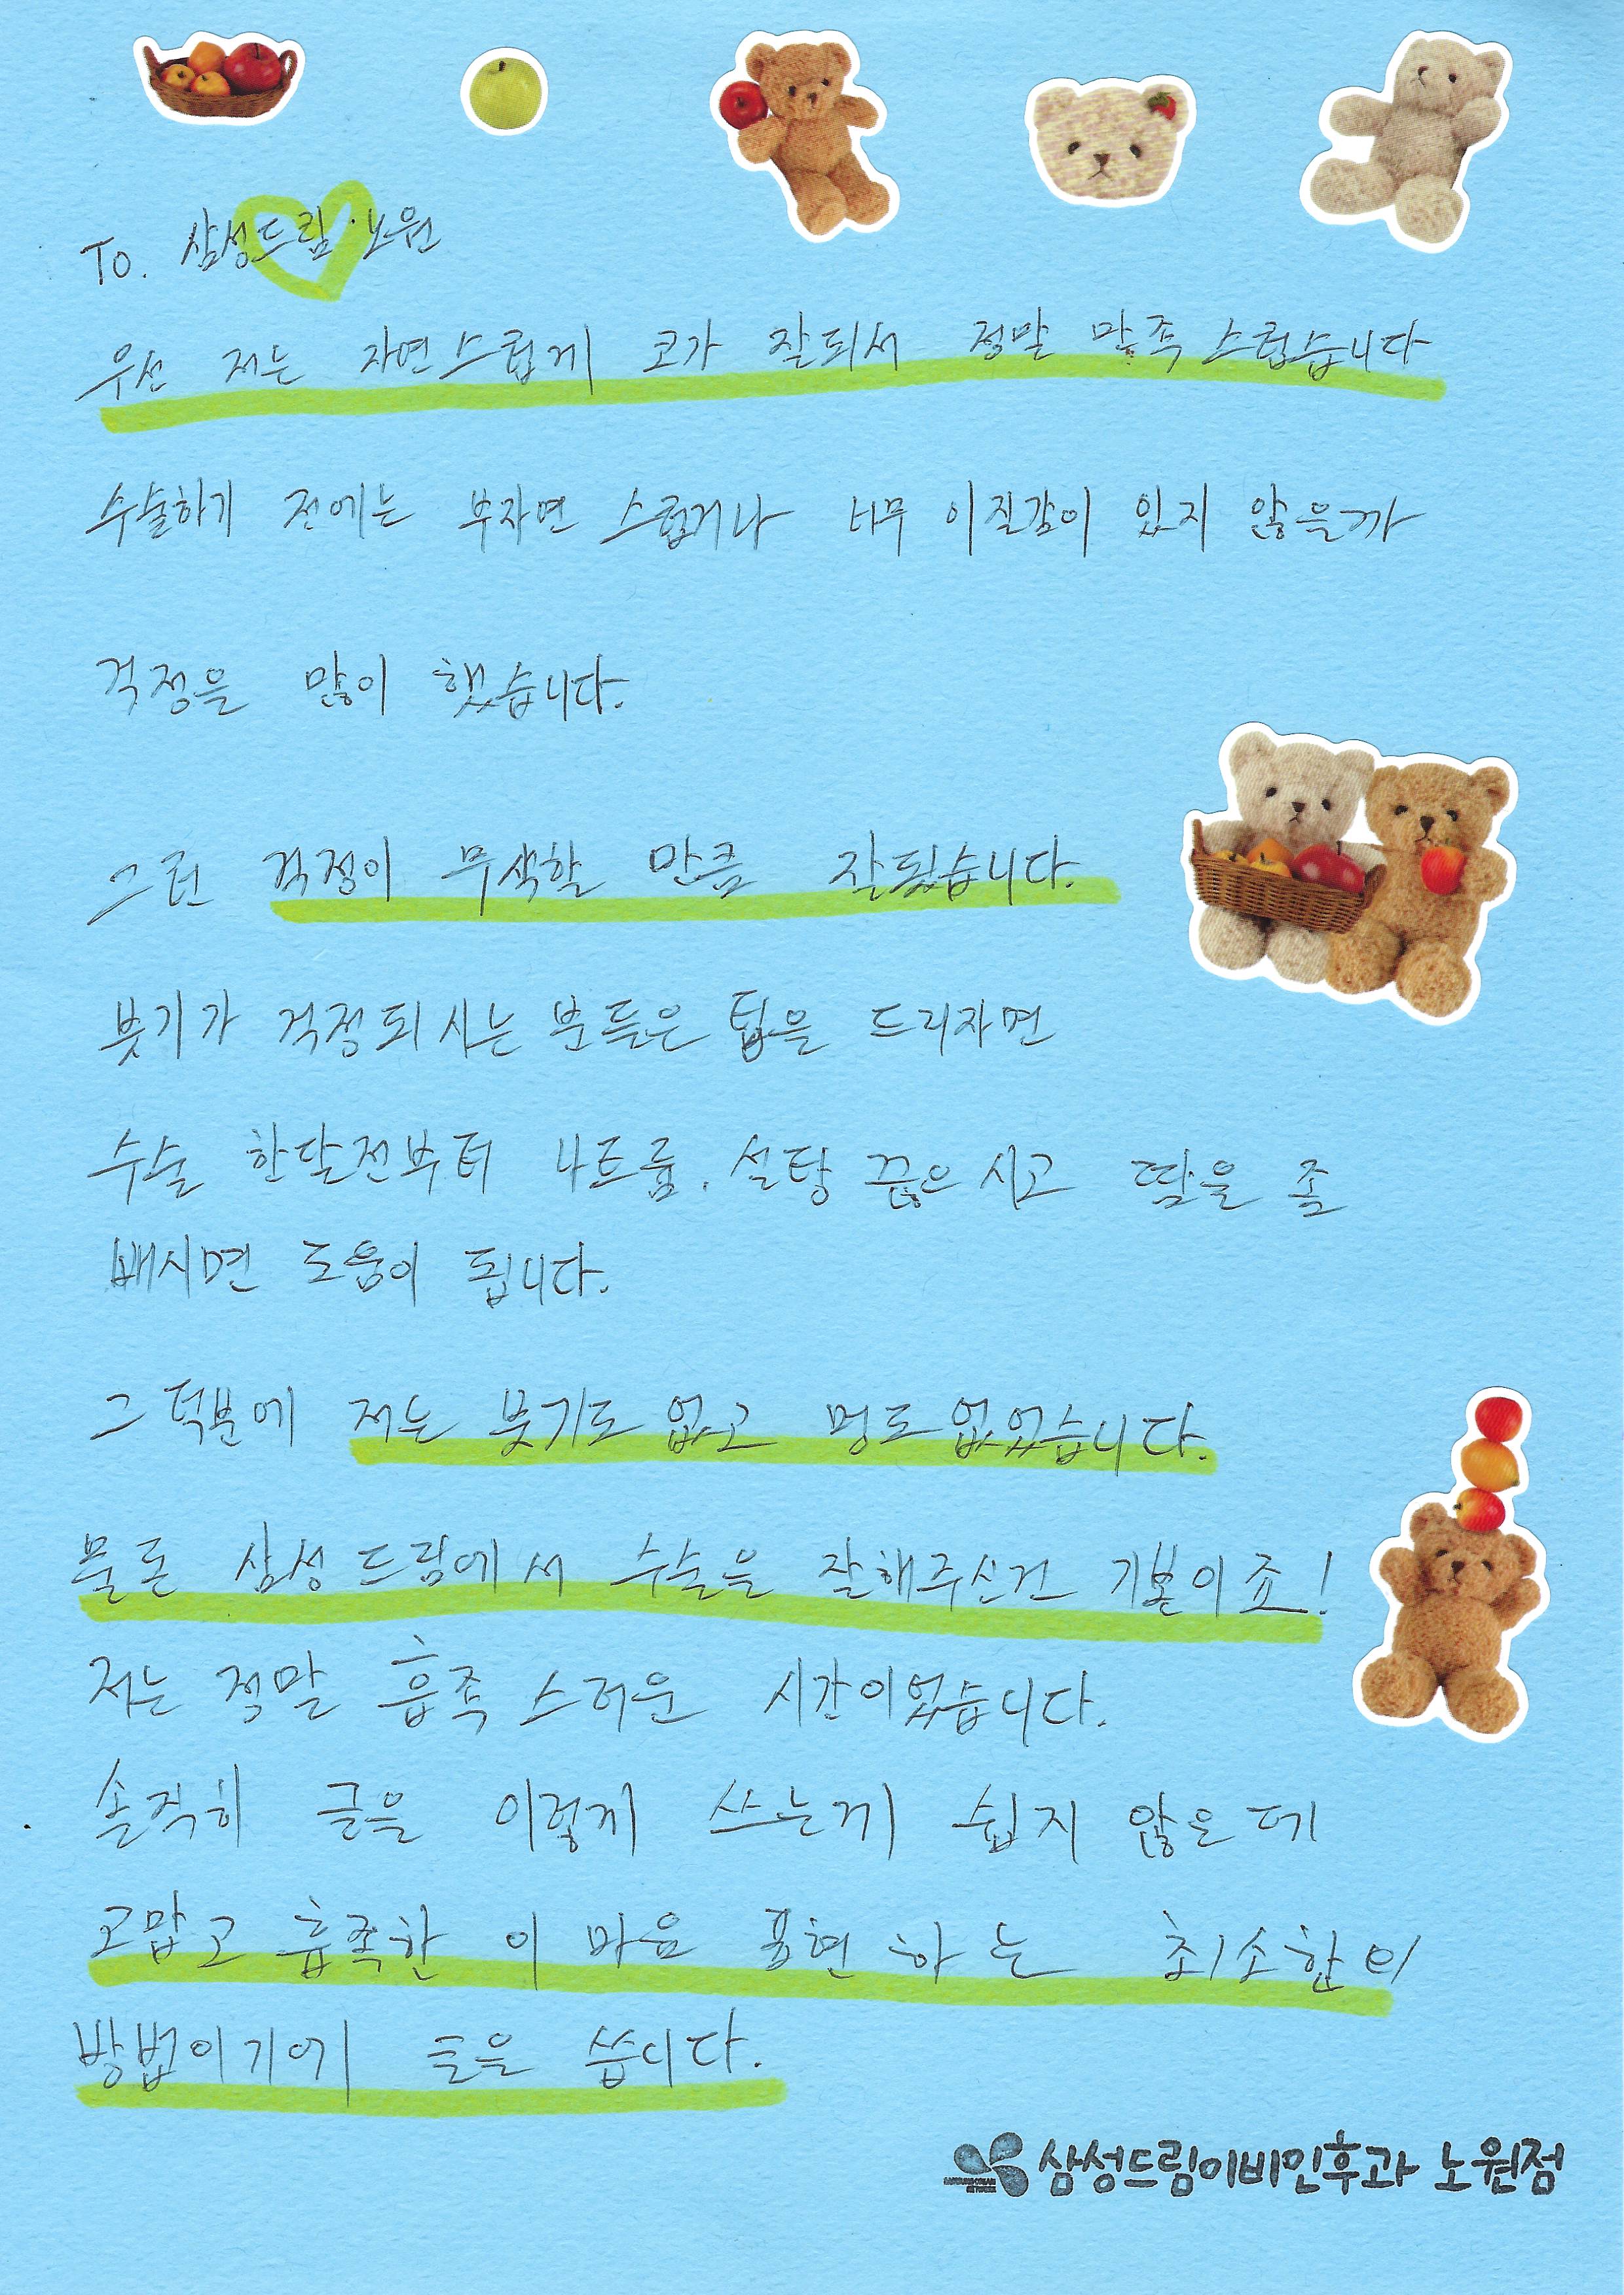 To. 삼성드림 노원
우선 저는 자연스럽게 코가 잘되서 정말 만족스럽습니다
수술하기 전에는 부자연 스럽거나 너무 이질감이 있지 않을까
걱정을 많이 했습니다.
그런 걱정이 무색할 만큼 잘됬습니다.
붓기가 걱정되시는 분들은 팁을 드리자면
수술 한달전부터 나트륨, 설탕 끊으시고 땀을 좀
빼시면 도움이 됩니다.
그 덕분에 저는 붓기도 없고 멍도 없었습니다.
물론 삼성드림에서 수술을 잘해주신건 기본이죠!
저는 정말 흡족스러운 시간이었습니다.
솔직히 글을 이렇게 쓰는게 쉽지 않은데
고맙고 흡족한 이 마음 표현하는 최소한의
방법이기에 글을 씁니다.
삼성드림이비인후과 노원점